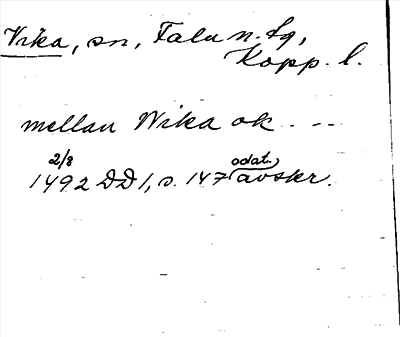 Vika, sn, Falu n. tg,
Kopp. l.
mellan Wika ok . --
2/8 odat.
1492 DD 1, s. 147 avskr.